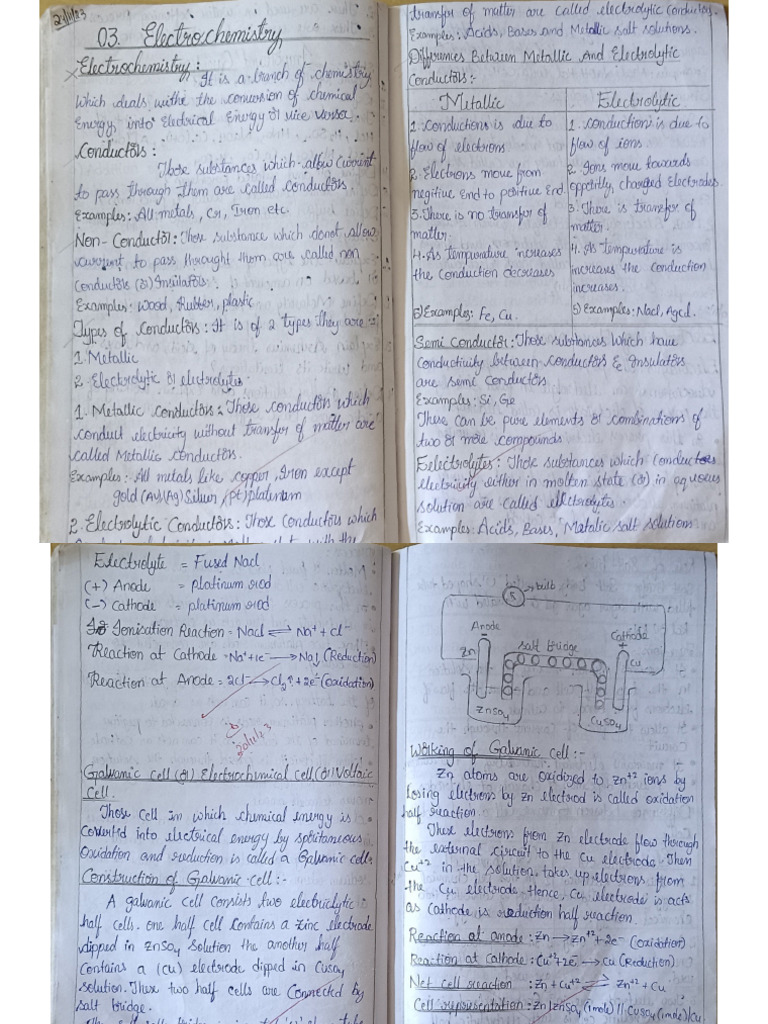 03. Electrochemistry
Electrochemistry:
It is a branch of chemistry
which deals withe the conversion of chemical
Energy, into Electrical Energy or vice versa.
Conductors:
Those substances which allow current
to pass through them are called conductors.
Examples: All metals, Cr, Iron etc.
Non-Conductor: Those substance which donot allow
current to pass throught them are called non
conductors (or) Insulators
Examples: wood, Rubber, plastic
Types of conductors: It is of 2 types they are
1. Metallic
2. Electrolytic or electrolytes
1. Metallic conductors: Those conductors which
conduct electricity without transfer of matter are
called Metallic conductors.
Examples: All metals like copper, Iron except
gold (Au) (Ag) Silver (pt) platinum
2. Electrolytic Conductors: Those Conductors which
transfer of matter are called electrolytic conductors.
Examples: Acids, Bases and Metallic salt solutions.
Differences Between Metallic And Electrolytic
Conductors:
Metallic
1. Conductions is due to
flow of electrons
2. Electrons move from
negitive End to positive End.
3. There is no transfer of
matter.
4. As temperature increases
the conduction decreases
5) Examples: Fe, Cu.
Electrolytic
1. conduction is due to
flow of ions.
2. Ions move towards
oppositly charged Electrodes.
3. There is transfer of
matter.
4. As temperature is
increases the conduction
increases.
5) Examples: Nacl, Agcl.
Semi Conductor: Those substances which have
conductivity between conductors & Insulators
are semi conductors
Examples: Si, Ge
These can be pure elements or combinations of
two or more compounds
Eelectrolytes: Those substances which conductors
electricity either in molten state (or) in aqueous
solution are called electrolytes.
Examples: Acids, Bases, Matalic salt solutions
Electrolyte = Fused Nacl
(+) Anode = platinum rod
(-) Cathode = platinum rod
Ionisation Reaction = Nacl ⇌ Na⁺ + cl⁻
Reaction at Cathode = Na⁺ + 1e⁻ → Na↓ (Reduction)
Reaction at Anode = 2cl⁻ → Cl₂↑ + 2e⁻ (oxidation)
Galvanic cell (or) Electrochemical cell (or) Voltaic
Cell.
Those Cell in which chemical energy is
Converted into electrical energy by spontaneous
Oxidation and reduction is called a Galvanic cell.
Construction of Galvanic cell:-
A galvanic cell Consists two electriclytic
half cells. one half cell Contains a zinc electrode
dipped in ZnSO₄ Solution the another half
Contains a (Cu) electrode dipped in Cuso₄
solution. These two half cells are Connected by
salt bridge.
bulb
Anode
-
Zn
salt bridge
Cathode
+
Cu
ZnSO₄
CuSO₄
Working of Galvanic cell:-
Zn atoms are oxidized to Zn⁺² ions by
losing electrons by Zn electrod is called oxidation
half reaction.
These electrons from Zn electrode flow through
the external circuit to the Cu electrode. Then
Cu⁺² in the solution takes up electrons from
the Cu electrode. Hence, Cu electrode is acts
as cathode is reduction half reaction.
Reaction at anode: Zn → Zn⁺² + 2e⁻ (oxidation)
Reaction at Cathode: Cu⁺² + 2e⁻ → Cu (Reduction)
Net cell reaction: Zn + Cu⁺² ⇌ Zn⁺² + Cu
Cell representation: Zn | ZnSO₄ (1mole) || CuSO₄ (1mole) | Cu